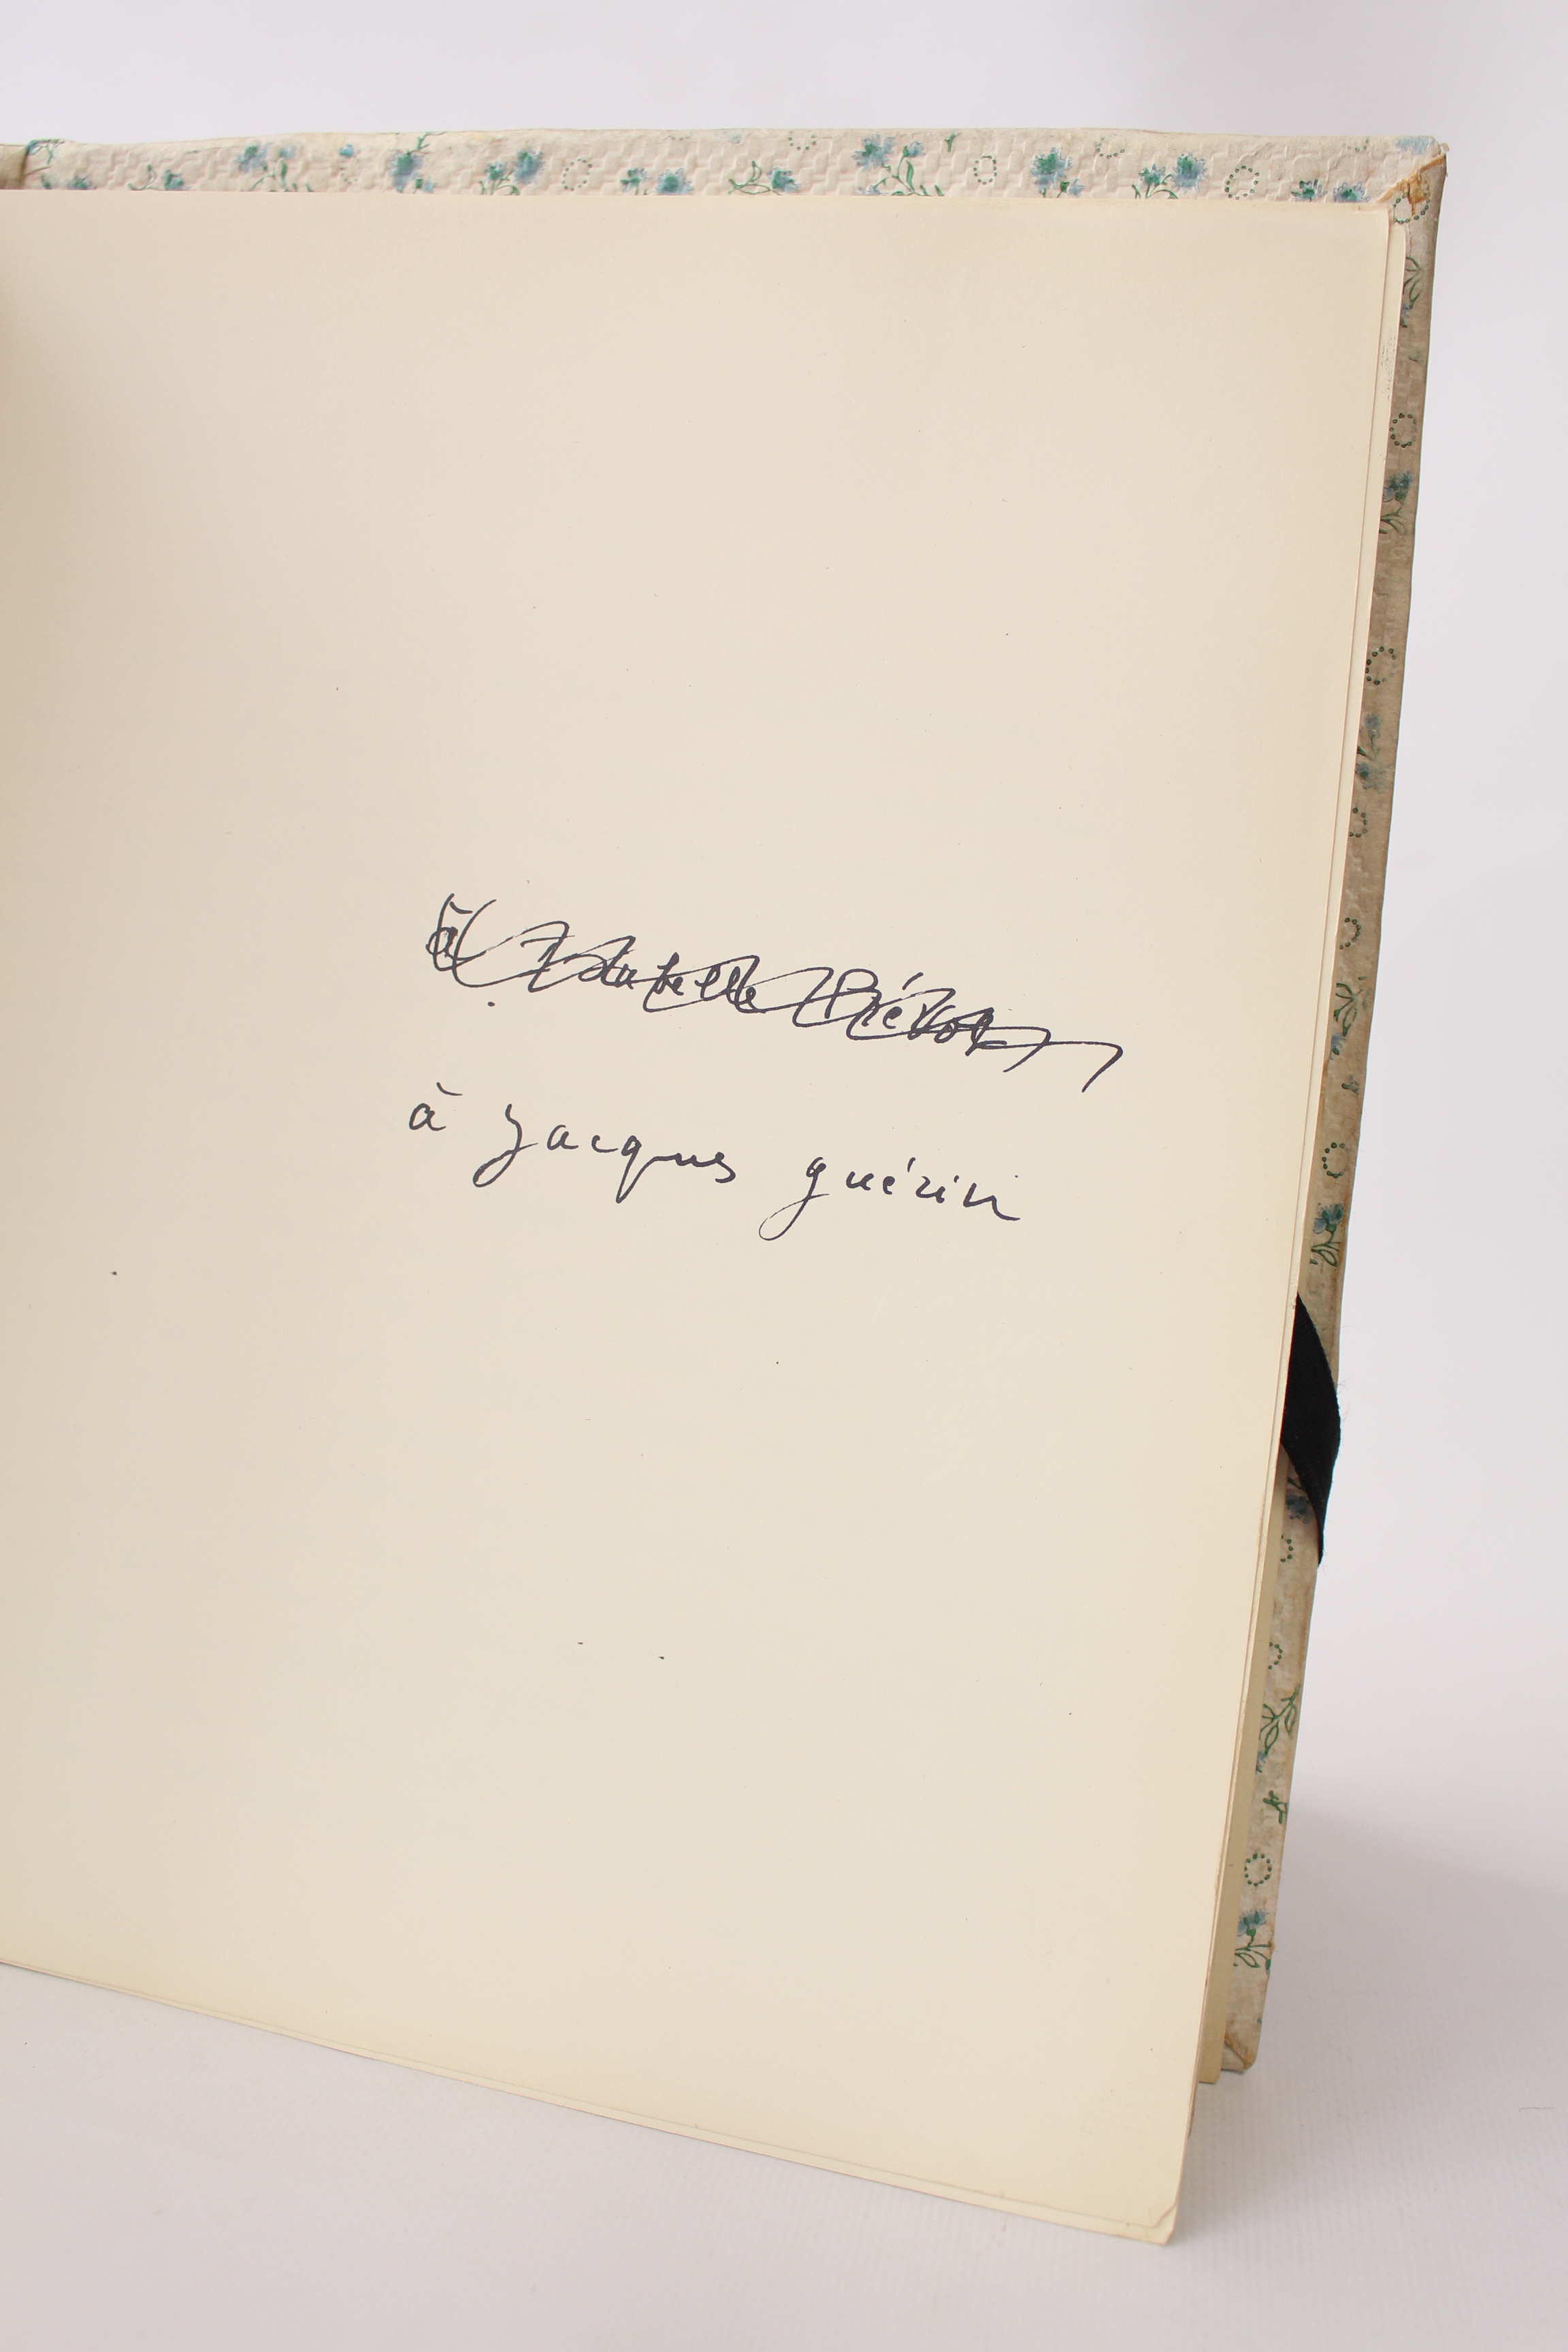 à Isabelle Prévost
à Jacques guérin